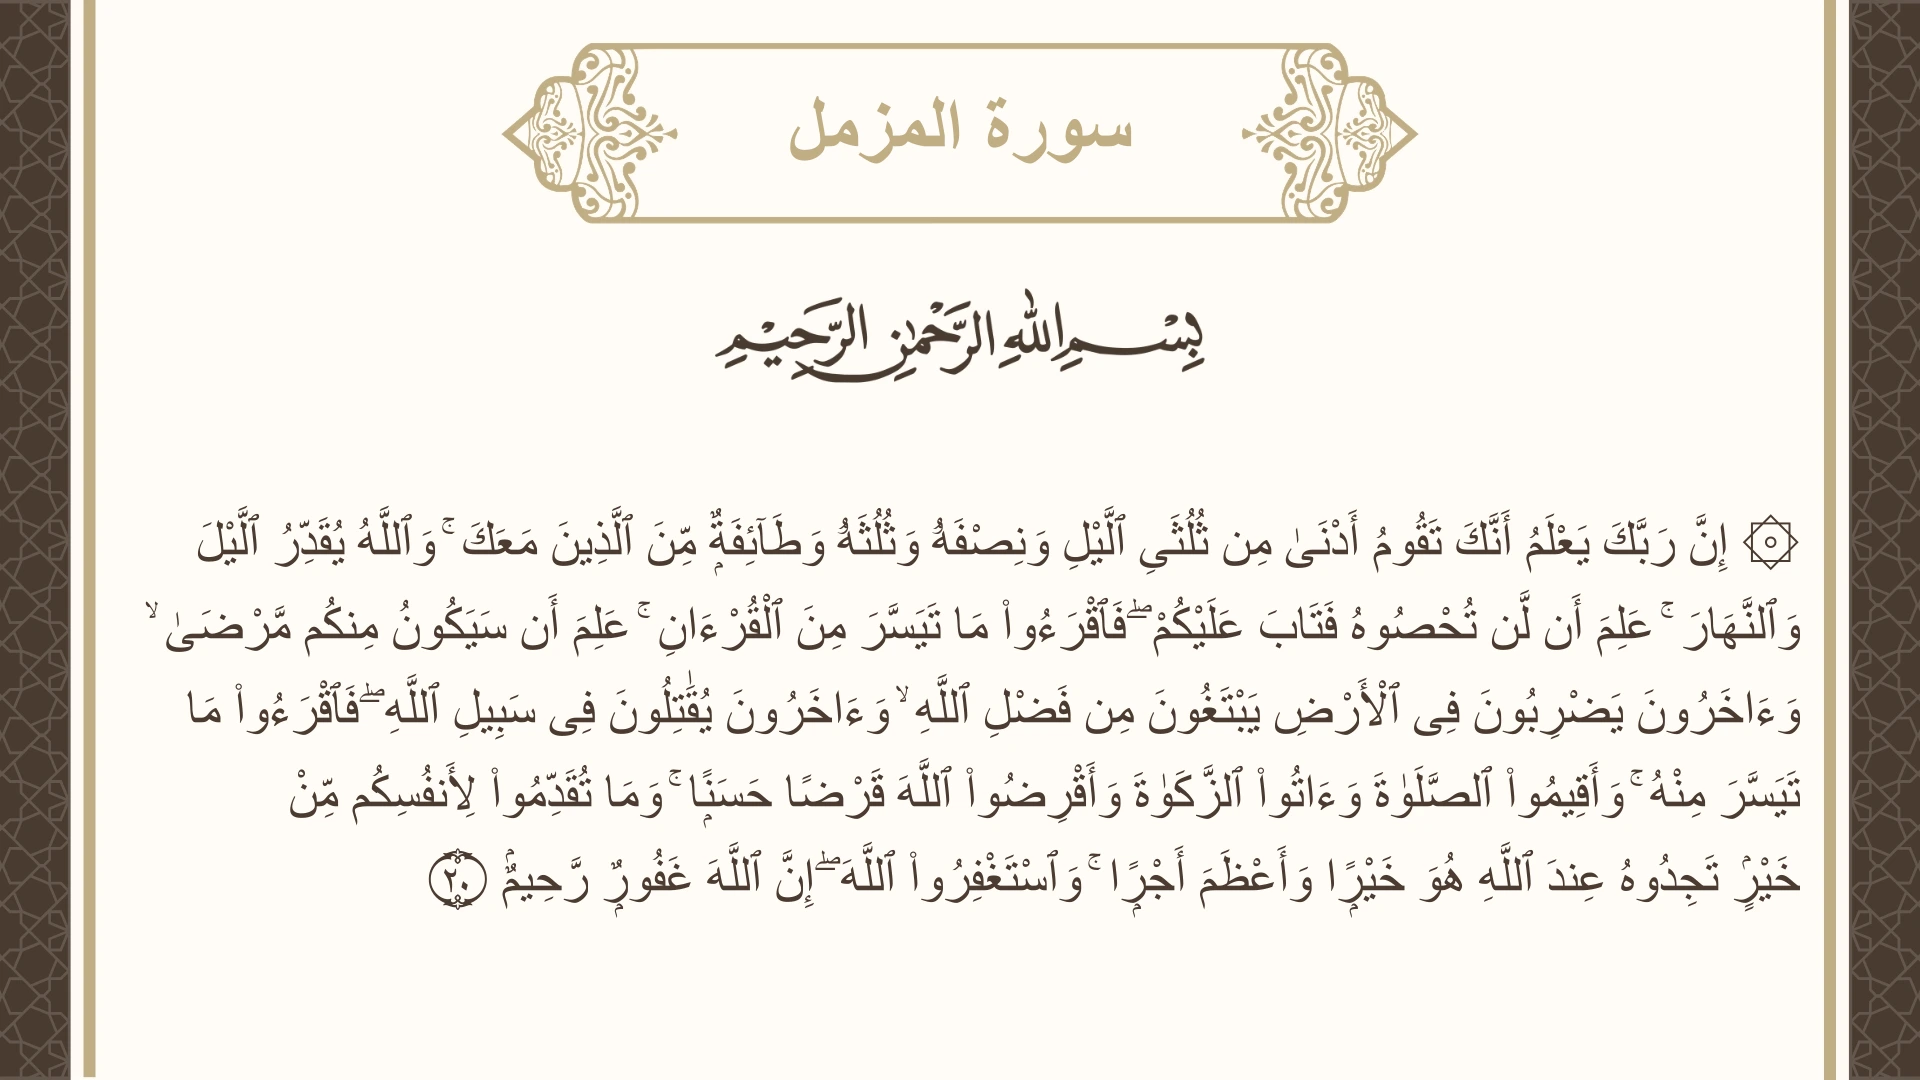 سورة المزمل
بِسْمِ اللهِ الرَّحْمٰنِ الرَّحِيْمِ
۞ إِنَّ رَبَّكَ يَعْلَمُ أَنَّكَ تَقُومُ أَدْنَىٰ مِن ثُلُثَىِ ٱلَّيْلِ وَنِصْفَهُۥ وَثُلُثَهُۥ وَطَآئِفَةٌۭ مِّنَ ٱلَّذِينَ مَعَكَ ۚ وَٱللَّهُ يُقَدِّرُ ٱلَّيْلَ
وَٱلنَّهَارَ ۚ عَلِمَ أَن لَّن تُحْصُوهُ فَتَابَ عَلَيْكُمْ ۖ فَٱقْرَءُوا۟ مَا تَيَسَّرَ مِنَ ٱلْقُرْءَانِ ۚ عَلِمَ أَن سَيَكُونُ مِنكُم مَّرْضَىٰ ۙ
وَءَاخَرُونَ يَضْرِبُونَ فِى ٱلْأَرْضِ يَبْتَغُونَ مِن فَضْلِ ٱللَّهِ ۙ وَءَاخَرُونَ يُقَـٰتِلُونَ فِى سَبِيلِ ٱللَّهِ ۖ فَٱقْرَءُوا۟ مَا
تَيَسَّرَ مِنْهُ ۚ وَأَقِيمُوا۟ ٱلصَّلَوٰةَ وَءَاتُوا۟ ٱلزَّكَوٰةَ وَأَقْرِضُوا۟ ٱللَّهَ قَرْضًا حَسَنًۭا ۚ وَمَا تُقَدِّمُوا۟ لِأَنفُسِكُم مِّنْ
خَيْرٍۢ تَجِدُوهُ عِندَ ٱللَّهِ هُوَ خَيْرًۭا وَأَعْظَمَ أَجْرًۭا ۚ وَٱسْتَغْفِرُوا۟ ٱللَّهَ ۖ إِنَّ ٱللَّهَ غَفُورٌۭ رَّحِيمٌۢ ٢٠